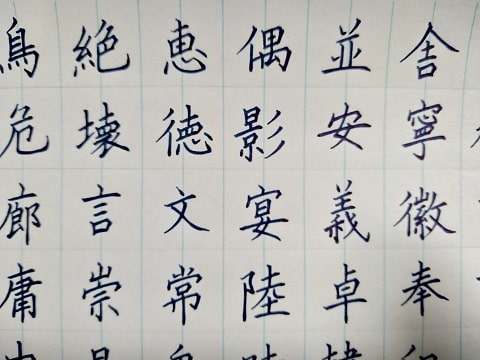 舎寧徽奉
並安義卓
偶影宴陸
恵徳文常
絶壊言崇
鳥危廊庸